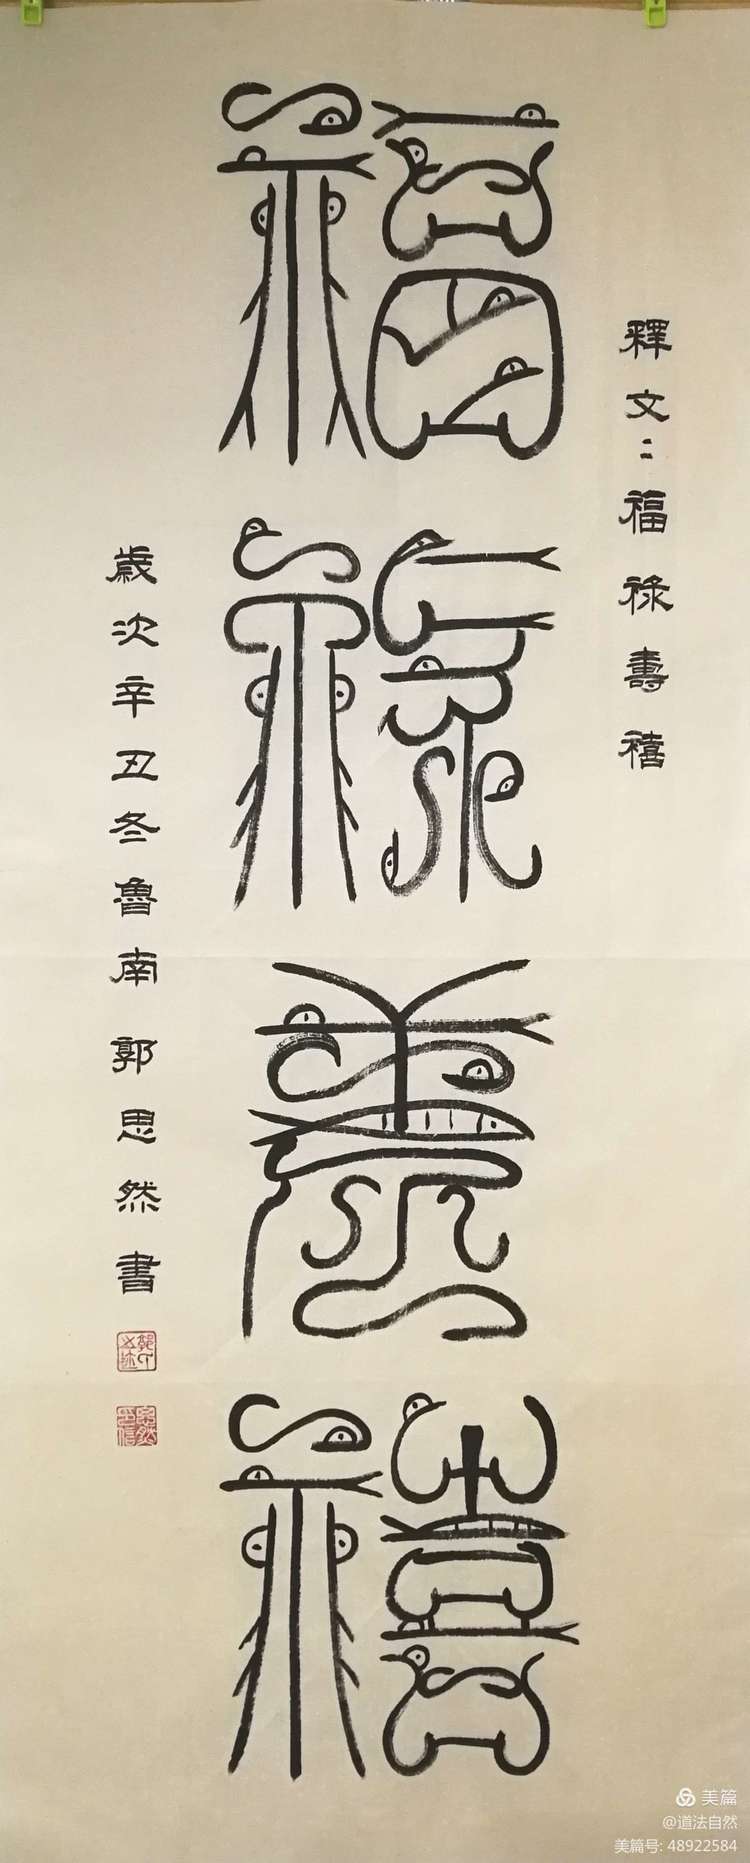 釋文：福祿壽禧
福祿壽禧
歲次辛丑冬魯南郭思然書
美篇
@道法自然
美篇号: 48922584